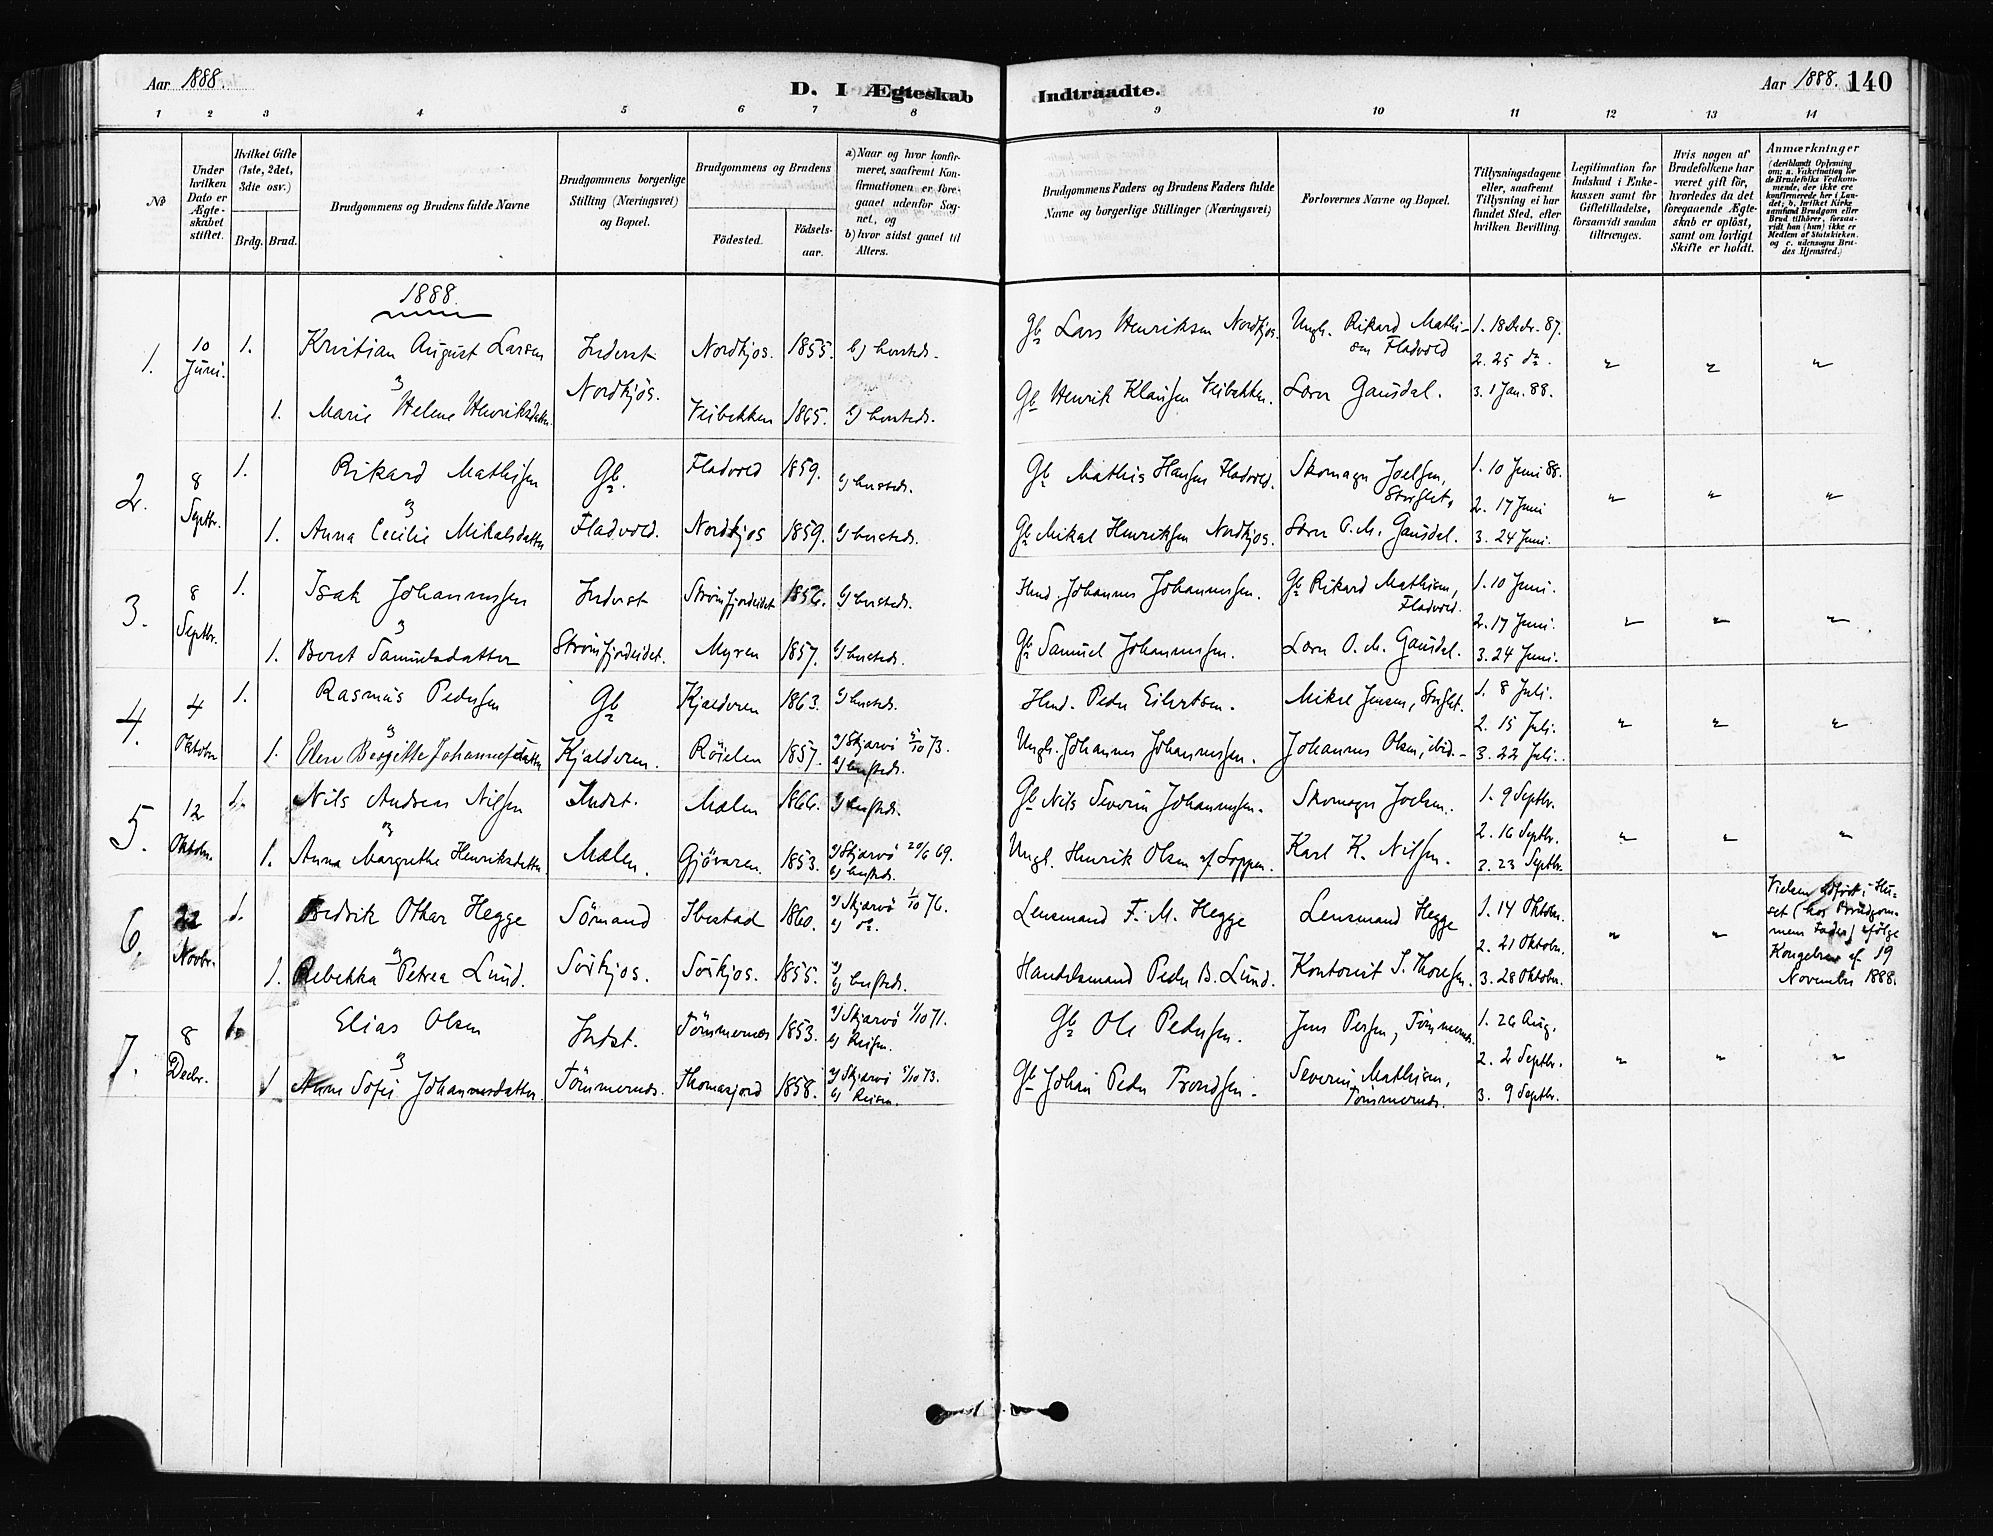 Aar 1888.
D. I Ægteskab Indtraadte.
Aar 1888. 140
1 2 3 4 5 6 7 8 9 10 11 12 13 14
No
Under hvilken Dato er Ægteskabet stiftet.
Hvilket Gifte (1ste, 2det, 3die osv.)
Brdg. Brud.
Brudgommens og Brudens fulde Navne
Brudgommens borgerlige Stilling (Næringsvei) og Bopæl.
Brudgommens og Brudens
Födested.
Födsels-aar.
a) Naar og hvor konfirmeret, saafremt Konfirmationen er foregaaet udenfor Sognet, og
b) hvor sidst gaaet til Alters.
Brudgommens Faders og Brudens Faders fulde Navne og borgerlige Stillinger (Næringsvei)
Forlovernes Navne og Bopæl.
Tillysningsdagene eller, saafremt Tillysning ei har fundet Sted, efter hvilken Bevilling.
Legitimation for Indskud i Enkekassen samt for Giftetilladelse, forsaavidt saadan tiltrænges.
Hvis nogen af Brudefolkene har været gift för, hvorledes da det foregaaende Ægteskab er oplöst, samt om lovligt Skifte er holdt.
Anmærkninger
(deriblandt Oplysning om: a. Vakcination for de Brudefolks Vedkommende, der ikke ere konfirmerede her i Landet; b. hvilket Kirkesamfund Brudgom eller Brud tilhörer, forsaavidt han (hun) ikke er Medlem af Statskirken. og c. udensogns Brudes Hjemsted.)
1888.
1. 10 Juni. 1. Kristian August Larsen Inderst Nordkjos. 1855. b) hersteds. Gb Lars Henriksen Nordkjos. Ungk. Rikard Mathisen Fladvold 1. 18 Decbr. 87. " " "
2. 25 do.
1. Marie Helene Henriksdatter. Nordkjos. Veibakken 1865. b) hersteds. Gb Henrik Klausen Veibakken. Lærer Gausdal. 3. 1 Jan. 88.
2. 8 Septbr. 1. Rikard Mathisen Gb. Fladvold 1859. b) hersteds. Gb Mathis Hansen Fladvold. Skomager Joelsen, 1. 10 Juni 88. " " "
2. 17 Juni
1. Anna Cecilie Mikalsdatter Fladvold. Nordkjos 1859. b) hersteds. Gb Mikal Henriksen Nordkjos. Lærer O. M. Gausdal. 3. 24 Juni.
3. 8 Septbr. 1. Isak Johannesen Inderst Strömfjordeidet 1856. b) hersteds. Johannes Johannesen. Gb Rikard Mathisen, Fladvold. 1. 10 Juni. " " "
2. 17 Juni.
1. Beret Samuelsdatter Strömfjordeidet. Myren 1857. b) hersteds. Gb Samuel Johannesen. Lærer O. M. Gausdal. 3. 24 Juni.
4. 4 Oktober 1. Rasmus Pedersen Gb Kjælderen 1863. b) hersteds. Peder Eilertsen. Mikal Jensen, 1. 8 Juli. " " "
2. 15 Juli.
1. Elen Bergitte Johannesdatter Kjælderen. Röielen 1857. a) Skjærvö 5/10 73. b) hersteds. Ungk. Johannes Johannesen. Johannes Olsen, ibid. 3. 22 Juli.
5. 12 Oktobr. 1. Nils Andreas Nilsen Indst. Mælen 1866. b) hersteds. Gb Nils Severin Johannesen. Skomager Joelsen. 1. 9 Septbr. " " "
2. 16 Septbr.
1. Anna Margrethe Henriksdatter Mælen. Gjövaren. 1853. a) Skjærvö 20/6 69. b) hersteds. Ungk. Henrik Olsen af Loppen. Karl K. Nilsen. 3. 23 Septbr.
6. 22 Novbr. 1. Fredrik Othar Hegge Sömand Ibestad 1860. a) Skjærvö 1/10 76. b) do. Lensmand F. M. Hegge Lensmand Hegge 1. 14 Oktobr. " "
2. 21 Oktobr.
1. Rebekka Petrea Lund. Sörkjos. Sörkjos. 1855. a) b) hersteds. Handelsmand Peder B. Lund. Kontorist S. Thoresen. 3. 28 Oktobr.
Vielsen udfört i Huset (hos Brudgommens Fader) ifölge Kongebrev af 19 November 1888.
7. 8 Decbr. 1. Elias Olsen Indst. Tömmernes 1853. a) Skjærvö 1/10 71. b) Reisen. Gb Ole Pedersen. Jens Persen, Tömmernes. 1. 26 Aug. " " "
2. 2 Septbr.
1 Anne Sofie Johannesdatter Tömmernes. Thomasjord 1858. a) Skjærvö 5/10 73. b) Reisen. Gb Johan Peder Trondsen. Severin Mathisen, Tömmernes. 3. 9 Septbr.